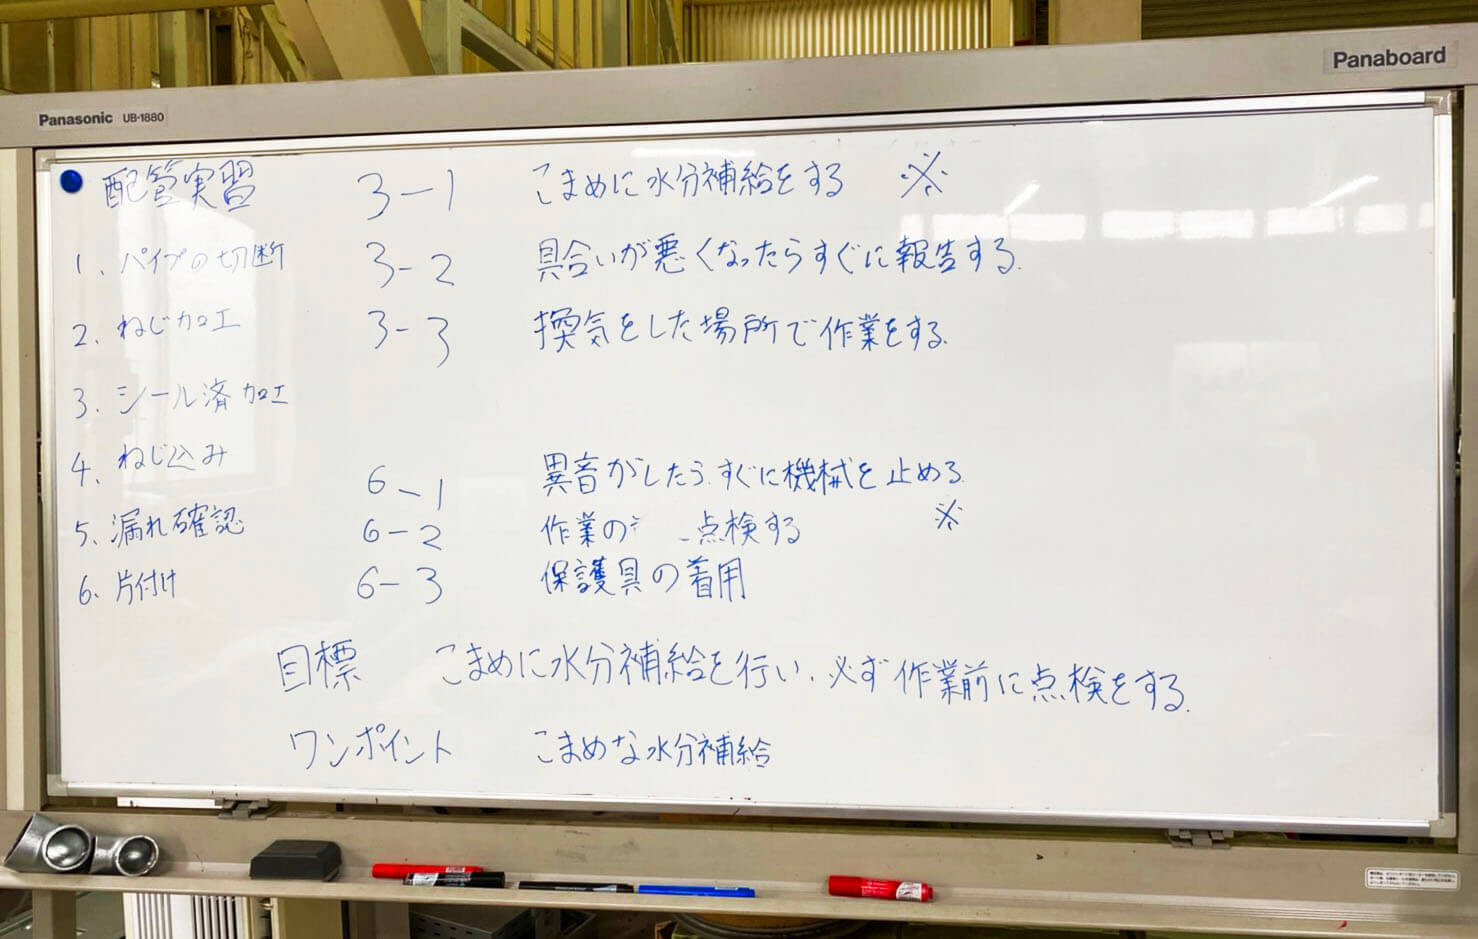 Panaboard
Panasonic UB-1880
配管実習
1、パイプの切断
2、ねじ加工
3、シール済加工
4、ねじ込み
5、漏れ確認
6、片付け
3-1 こまめに水分補給をする ※
3-2 具合いが悪くなったらすぐに報告する。
3-3 換気をした場所で作業をする。
6-1 異音がしたらすぐに機械を止める。
6-2 作業の 点検する ※
6-3 保護具の着用
目標 こまめに水分補給を行い、必ず作業前に点検をする。
ワンポイント こまめな水分補給